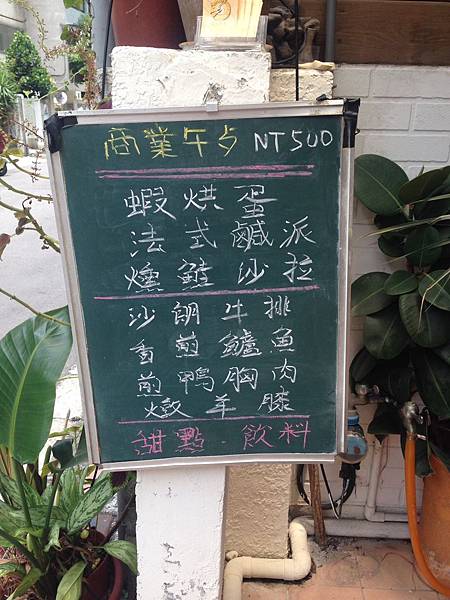 商業午夕 NT500
蝦烘蛋
法式鹹派
燻鮭沙拉
沙朗牛排
香煎鱸魚
煎鴨胸肉
燉羊膝
甜點 飲料